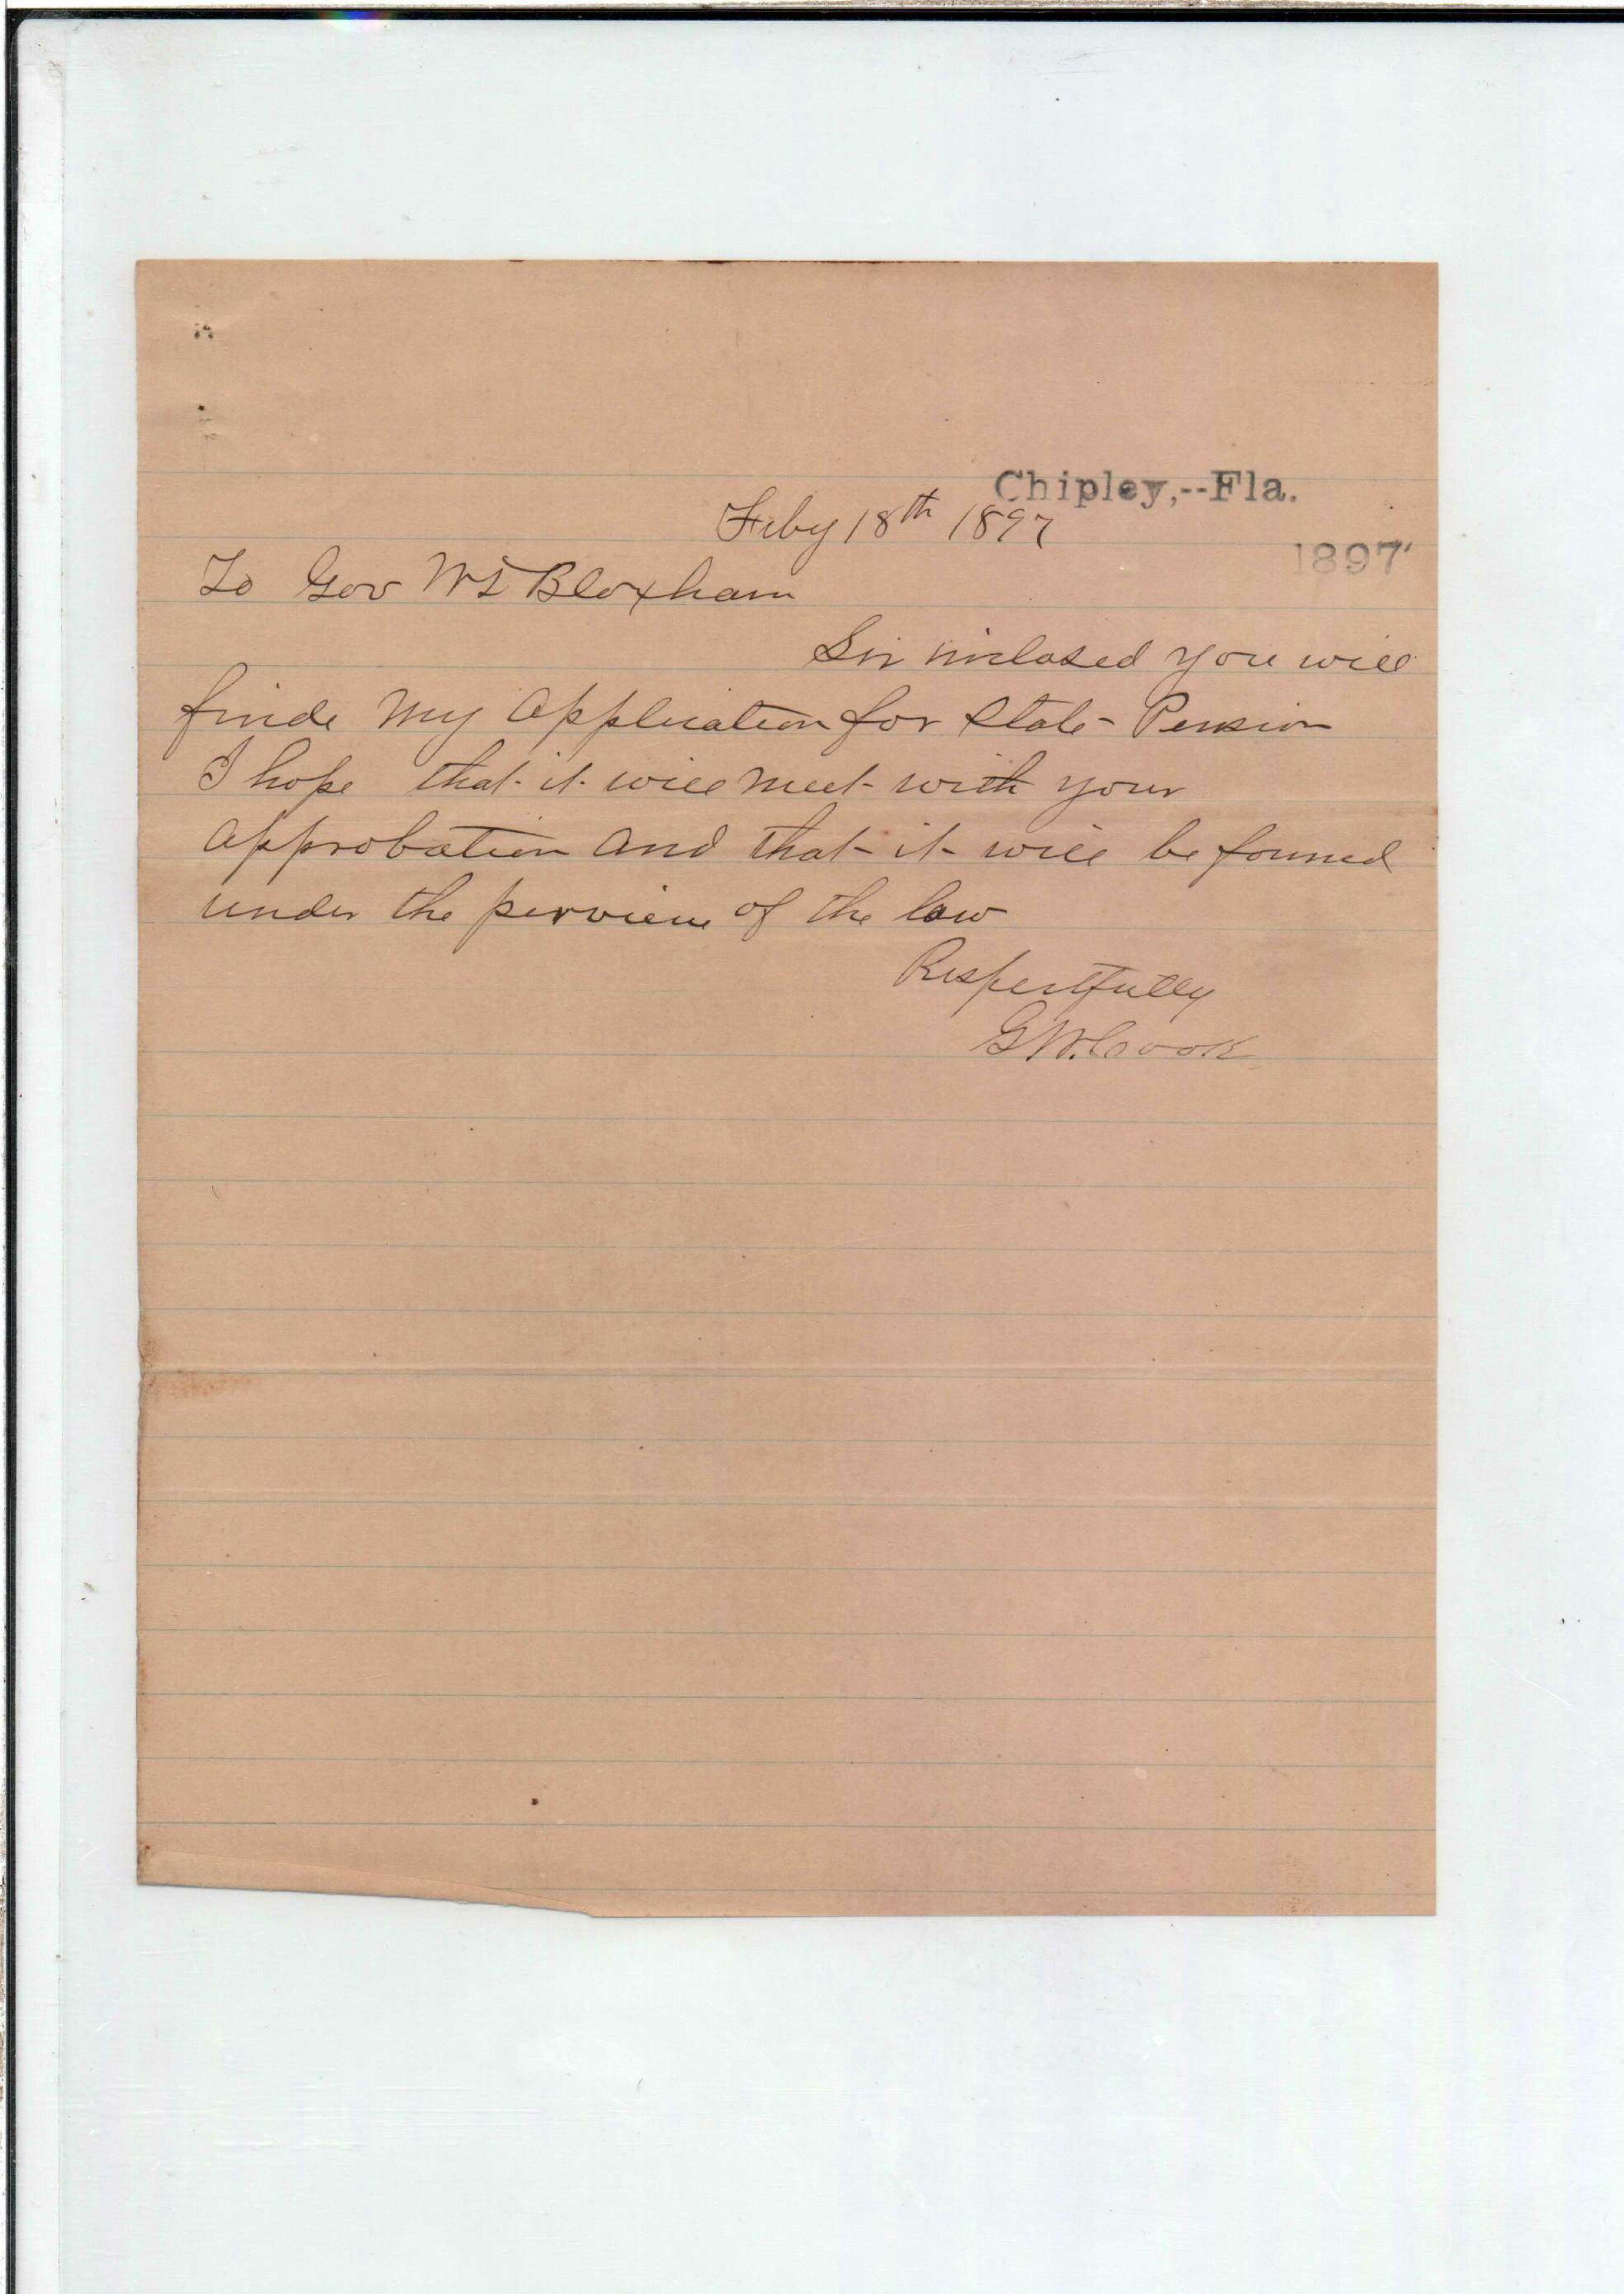 Chipley,--Fla.
Feby 18th 1897
1897
To Gov W D Bloxham
Sir inclosed you will
finde My Application for State Pension
I hope that it will Meet with your
Approbation And that it will be founed
under the perview of the law
Respectfully
G W. Cook